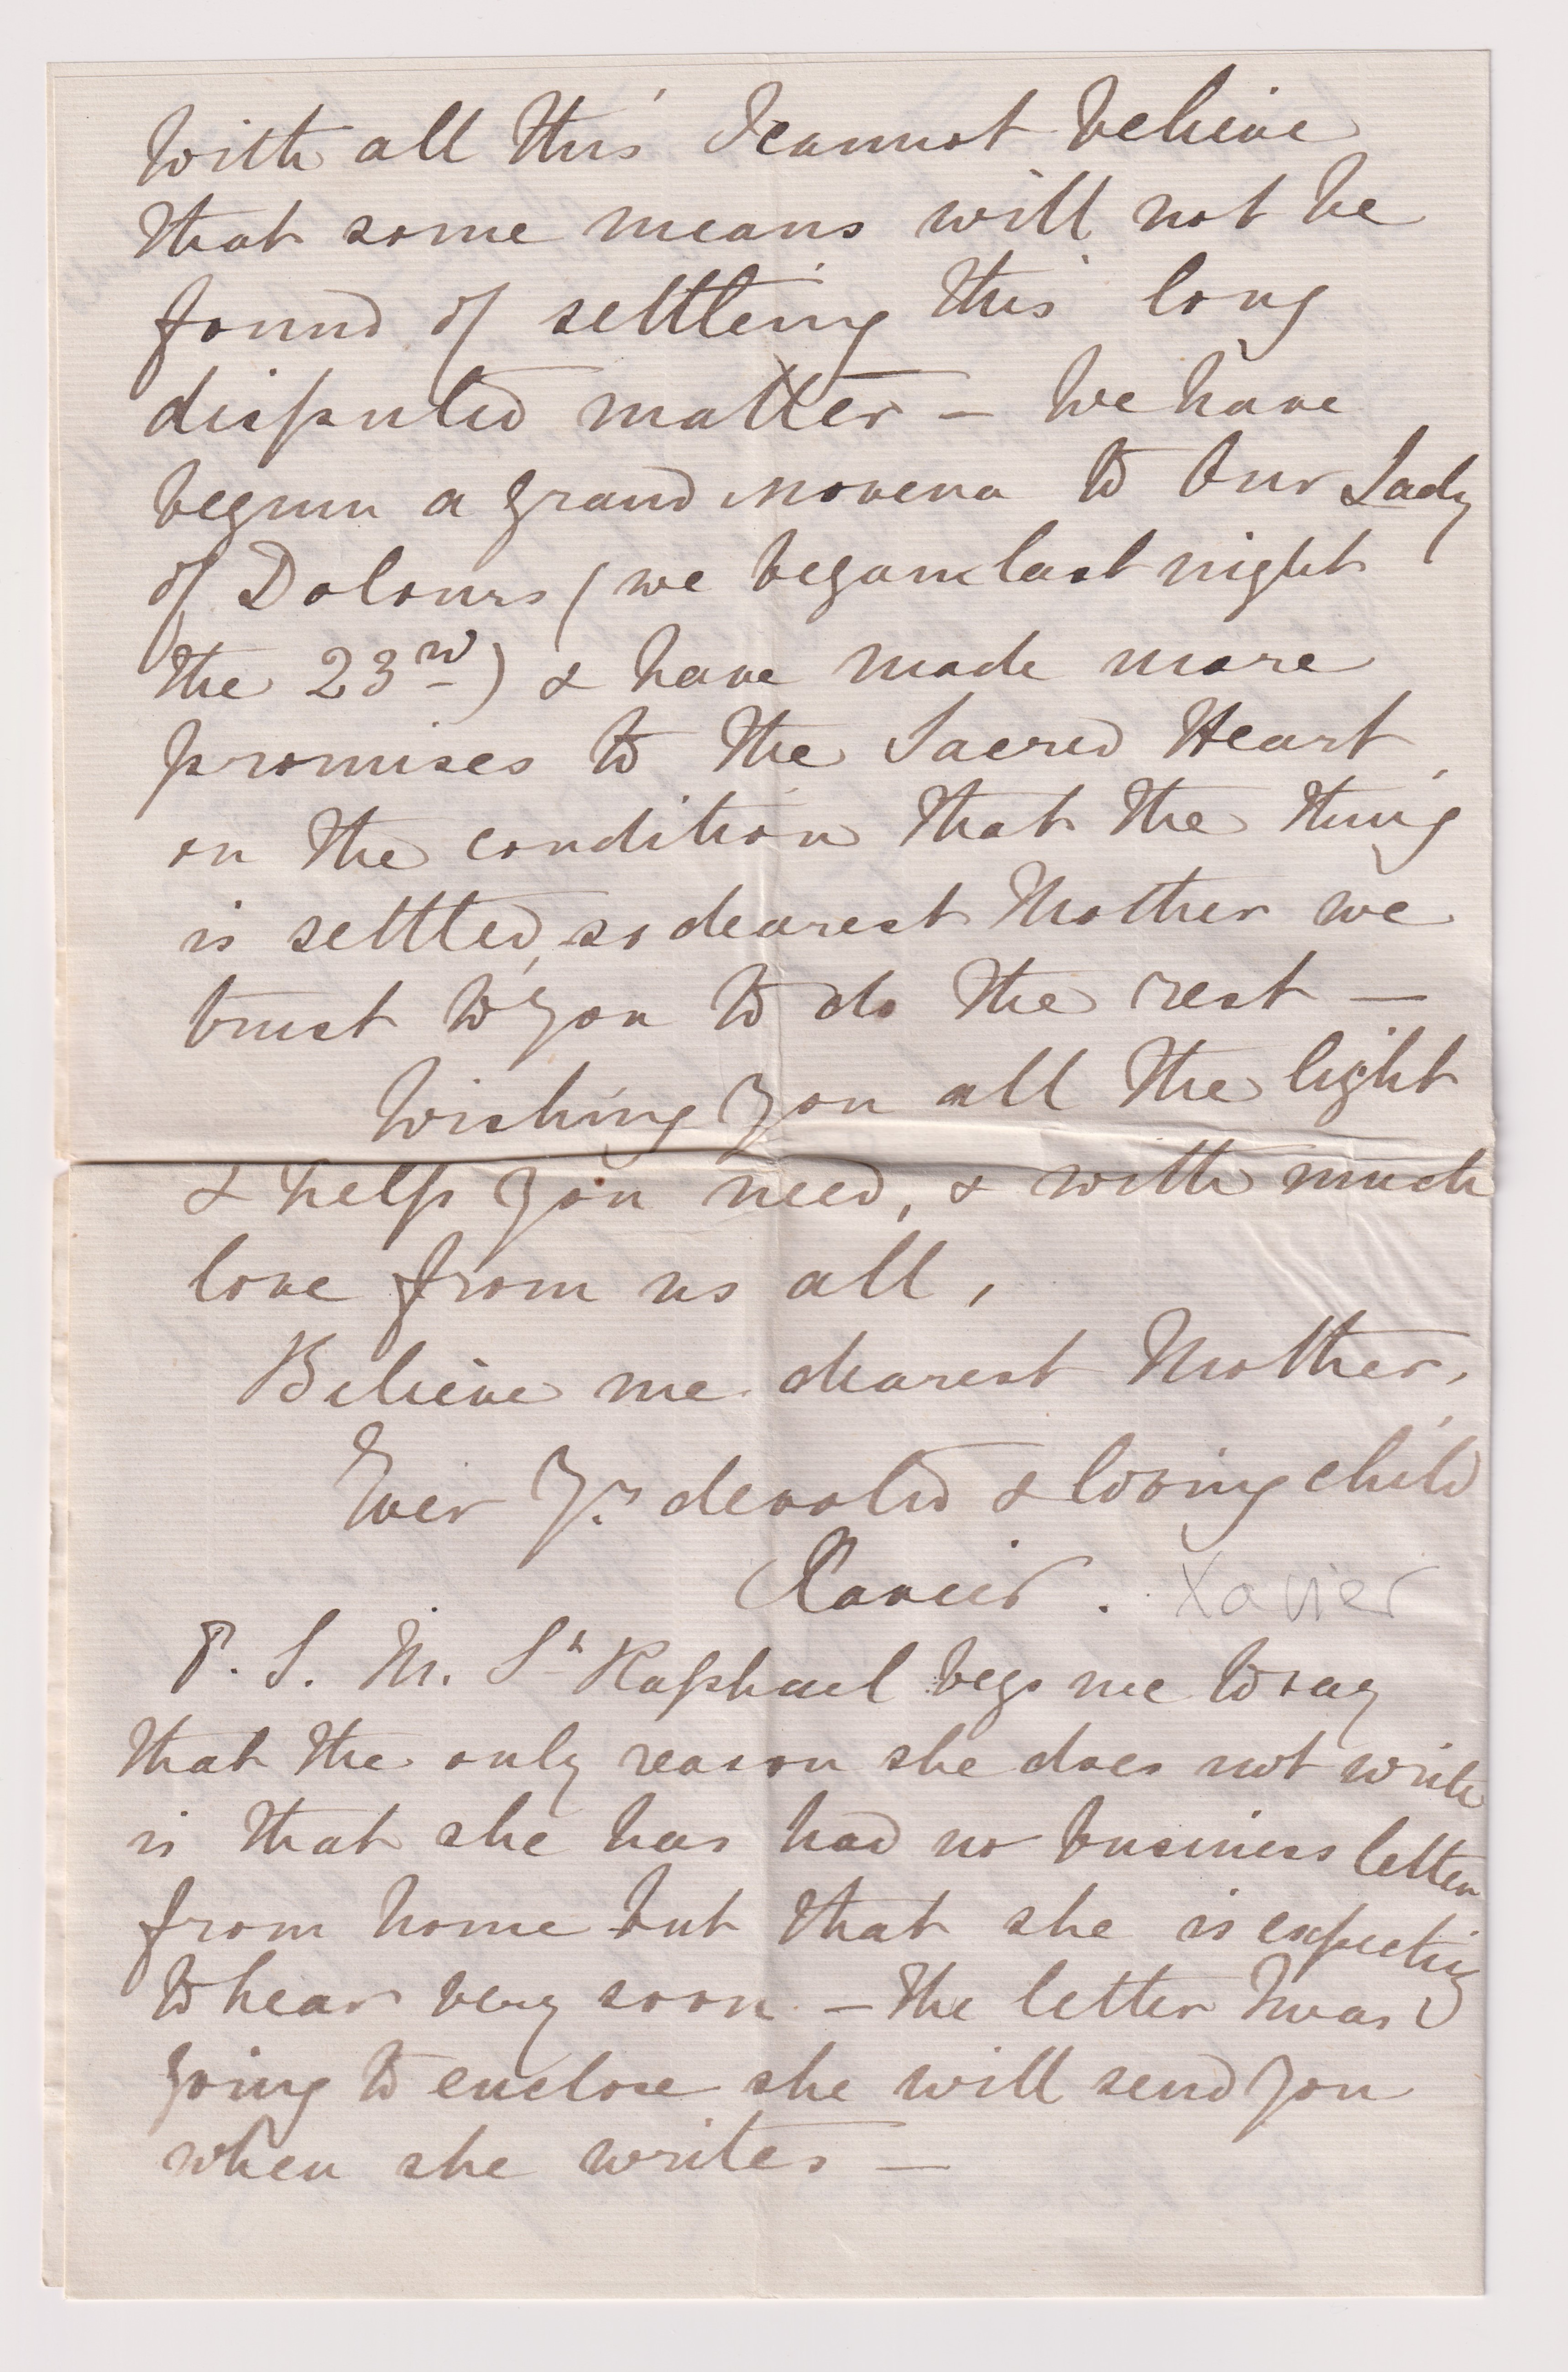 With all this I cannot believe
that some means will not be
found of settling this long
disputed matter – We have
begun a grand Novena to Our Lady
of Dolours (we began last night
the 23rd) & have made more
promises to the Sacred Heart,
on the condition that the thing
is settled, so dearest Mother we
trust to you to do the rest –
Wishing you all the light
& help you need, & with much
love from us all,
Believe me dearest Mother,
Ever Yr. devoted & loving child
Xavier. Xavier
P. S. M. St Raphael begs me to say
that the only reason she does not write
is that she has had no business letter
from home but that she is expecting
to hear very soon – The letter I was
going to enclose she will send you
when she writes –